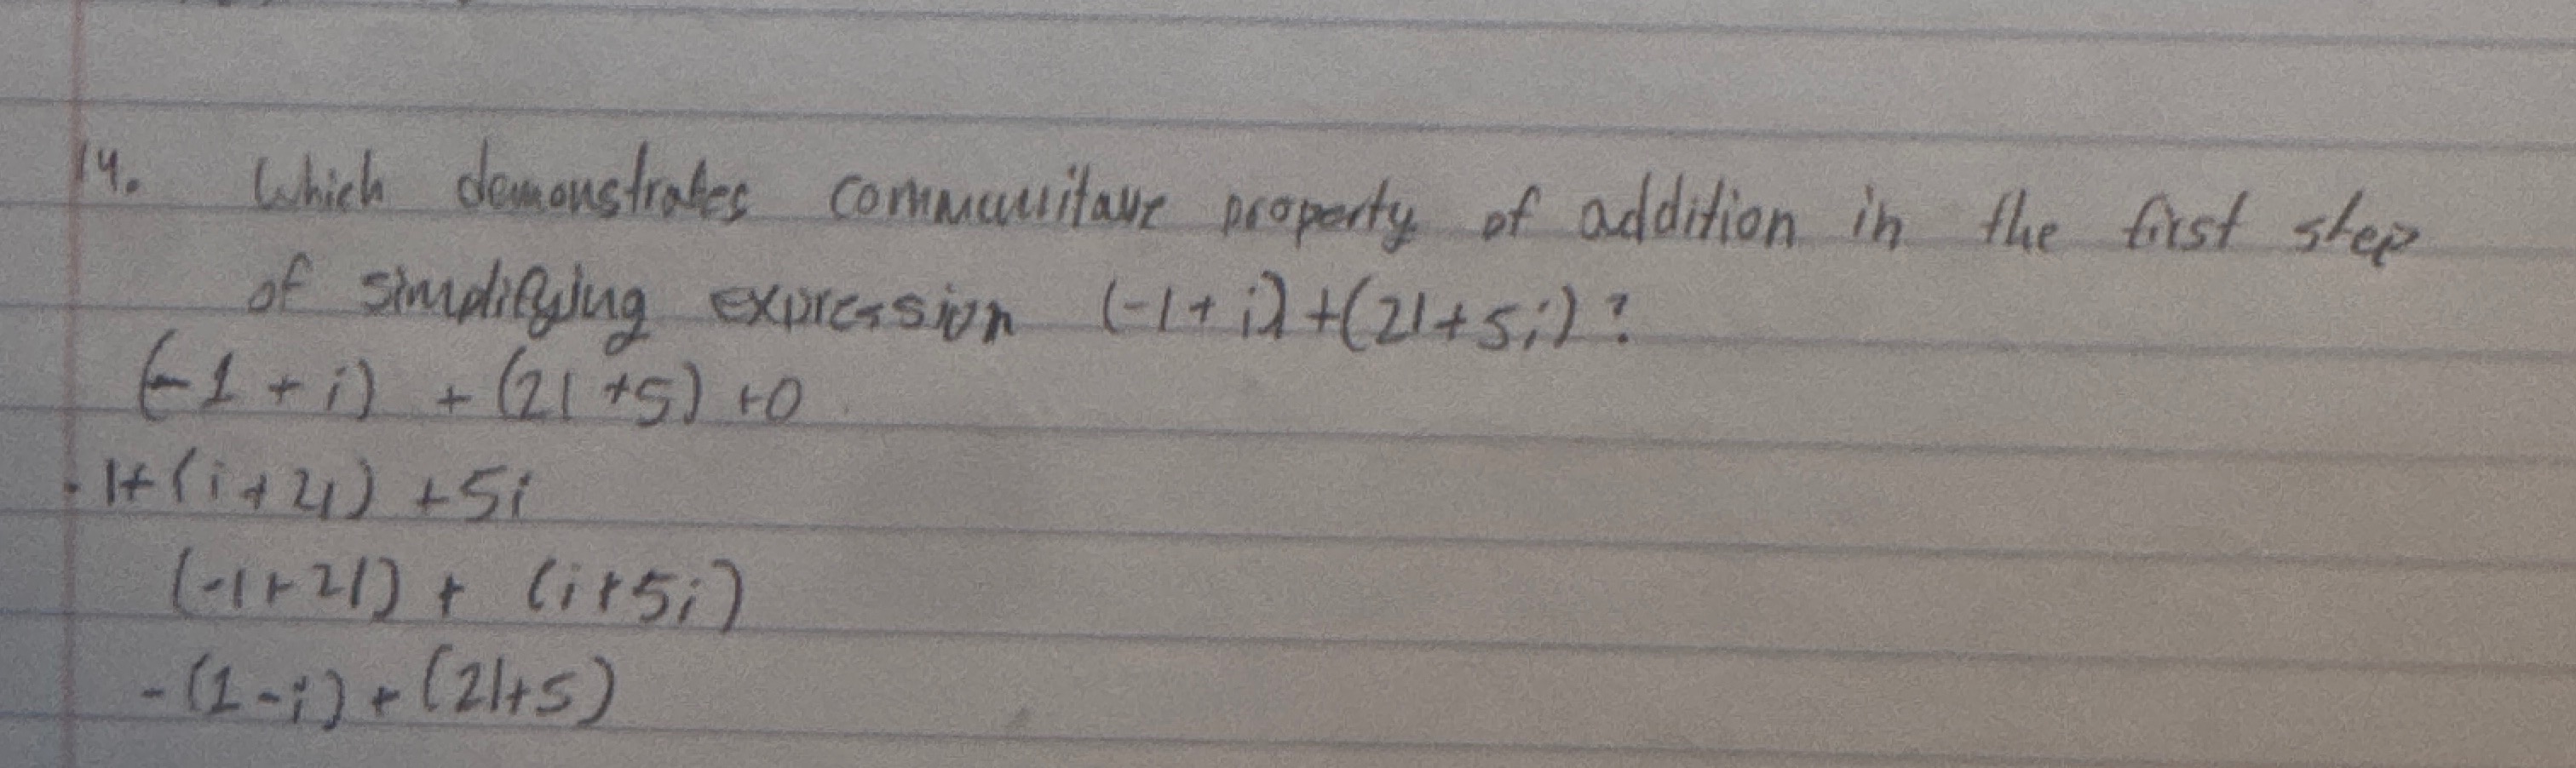 14. Which demonstrates commuuitave property of addition in the first step
of simplifying expression (-1+i)+(21+5i)?
(-1+i) + (21+5) +0
-1+(i+21) +5i
(-1+21) + (i+5i)
-(1-i)+(21+5)